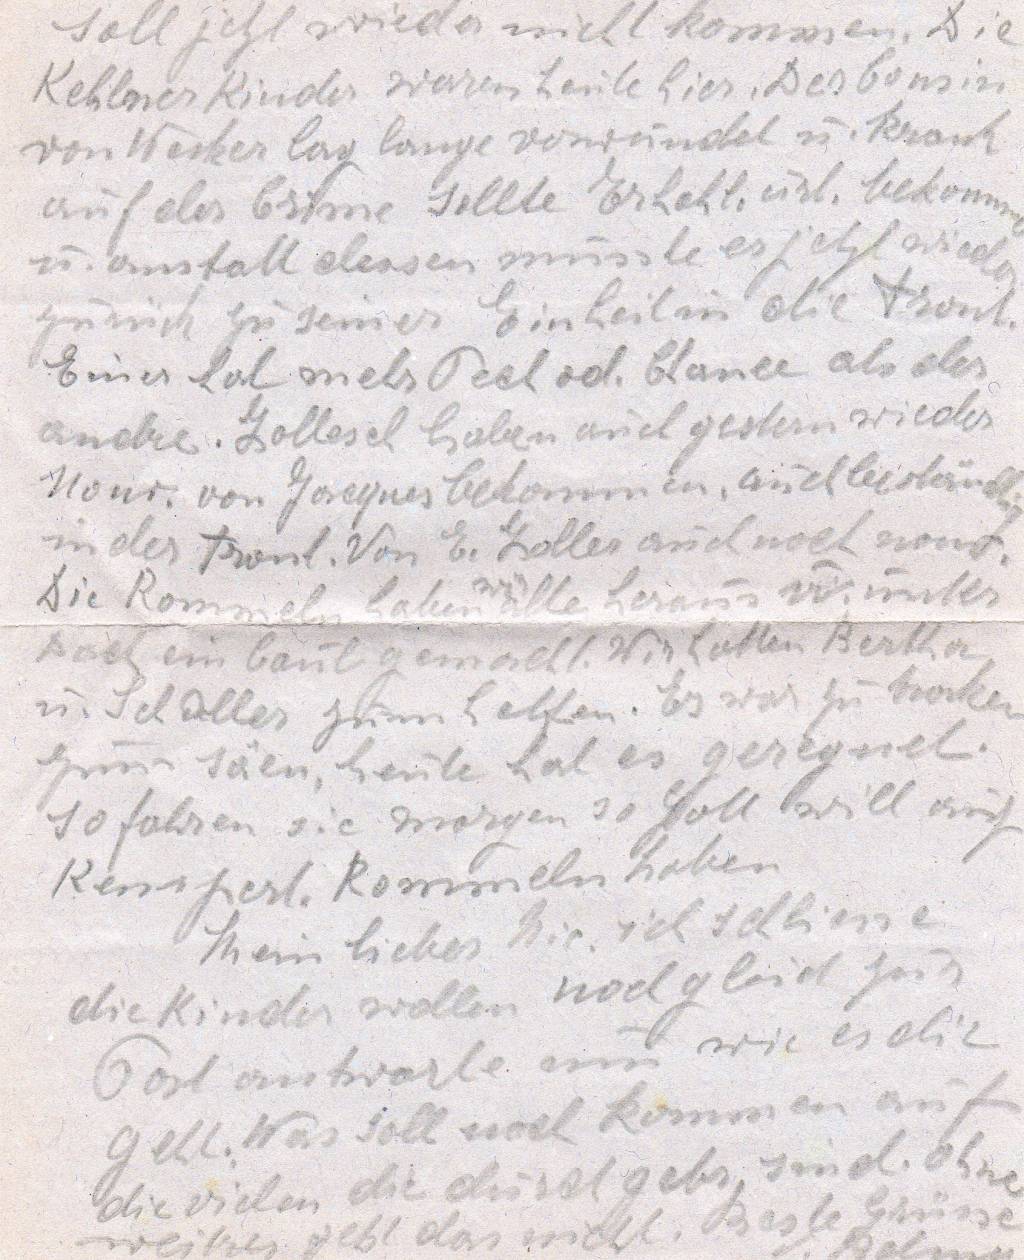 soll jetzt wieder nicht kommen. Die
Kehlner Kinder waren heute hier. Der Cousin
von Weeker lag lange verwundet u. krank
auf der Crime sollte Erhohl. url. bekommen
u. anstatt dessen musste er jetzt wieder
zurück zu seiner Einheit in die Front.
Einer hat mehr Pech od. Chance als der
andre. Gollesch haben auch gestern wieder
Nouv. von Jacques bekommen, auch beständig
in der Front. Von E. Goller auch noch nouv.
Die Rommeln haben wir alle heraus u. unter
Dach ein laut gemacht. Wir hatten Bertha
u. Schaller zum helfen. Es war zu trocken
zum säen, heute hat es geregnet.
so fahren sie morgen so Gott will auf
Rommeln haben
Mein lieber Nic. ich schliesse
die Kinder wollen noch gleich zur
Post antworte nur wie es dir
geht. Was soll noch kommen auf
die vielen die durchgebr. sind. Ohne
weitres geht das nicht. Beste Grüsse